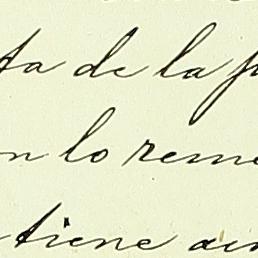 ta de la p
n lo reme
tiene ain